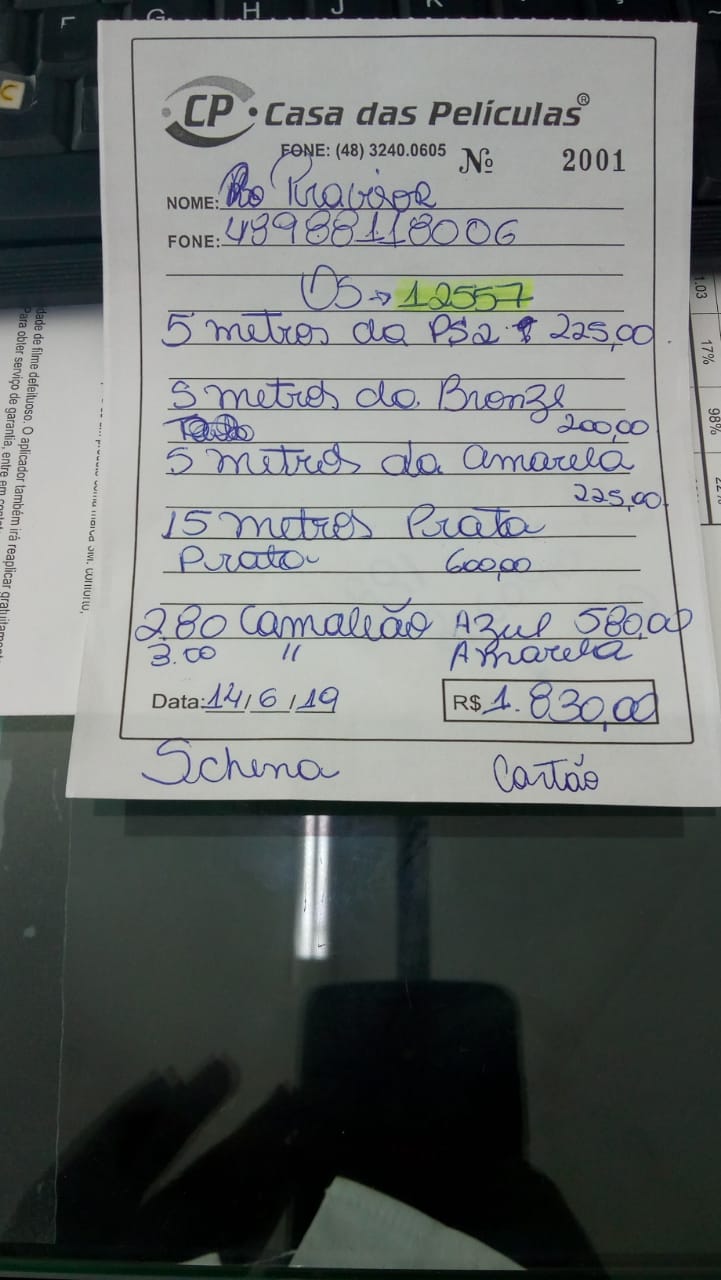 G H J K
C
CP · Casa das Películas®
FONE: (48) 3240.0605 Nº 2001
NOME:
FONE: 48988118006
OS → 12557
5 metros da PS2 225,00
5 metros do Bronze
200,00
5 metros da amarela
225,00
15 metros Prata
Prata 600,00
2.80 Camaleão Azul 580,00
3.00 " Amarela
Data: 14/6/19 R$ 1.830,00
Schena Cartão
dade de filme defeituoso. O aplicador também irá reaplicar gratuitament
Para obter serviço de garantia, entre em
1.03
17%
98%